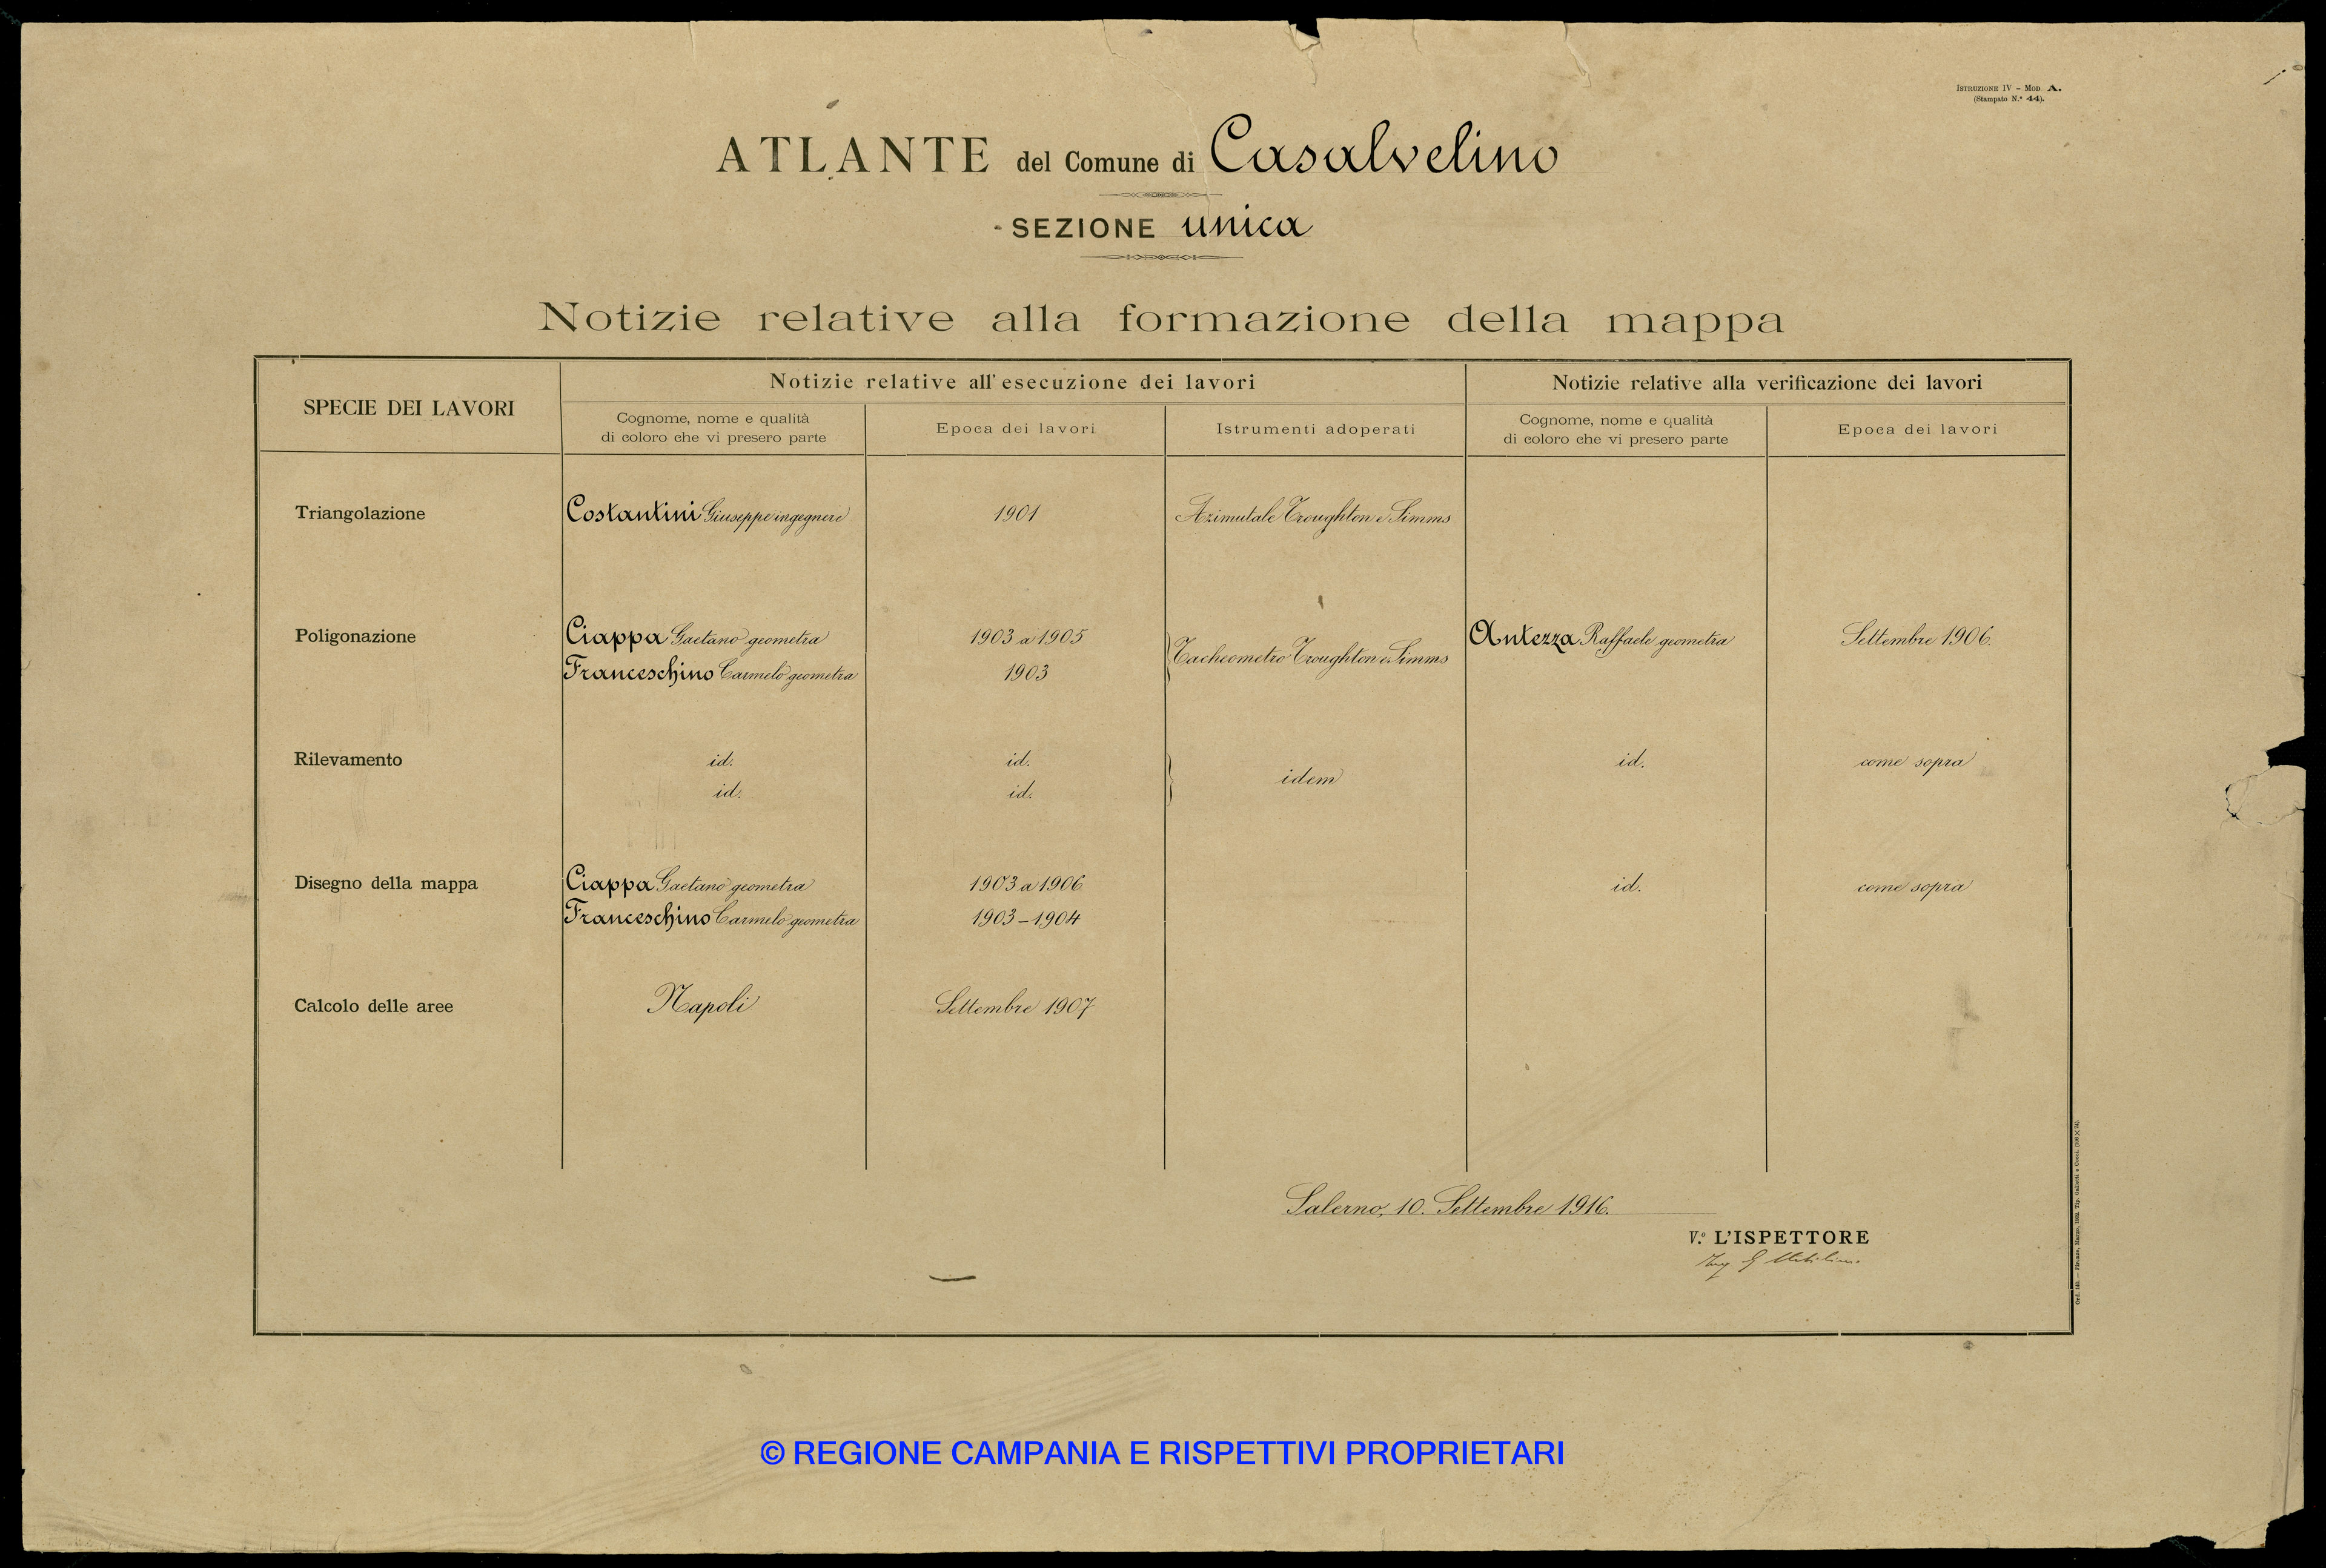 Istruzione IV – Mod. A.
(Stampato N.º 44).
ATLANTE del Comune di Casalvelino
SEZIONE unica
Notizie relative alla formazione della mappa
SPECIE DEI LAVORI
Notizie relative all'esecuzione dei lavori
Notizie relative alla verificazione dei lavori
Cognome, nome e qualità
di coloro che vi presero parte
Epoca dei lavori
Istrumenti adoperati
Cognome, nome e qualità
di coloro che vi presero parte
Epoca dei lavori
Triangolazione
Costantini Giuseppe ingegnere
1901
Azimutale Troughton e Simms
Poligonazione
Ciappa Gaetano geometra
1903 a 1905
Franceschino Carmelo geometra
1903
Tacheometro Troughton e Simms
Antezza Raffaele geometra
Settembre 1906.
Rilevamento
id.
id.
id.
id.
idem
id.
come sopra
Disegno della mappa
Ciappa Gaetano geometra
1903 a 1906
Franceschino Carmelo geometra
1903–1904
id.
come sopra
Calcolo delle aree
Napoli
Settembre 1907
Salerno, 10. Settembre 1916.
V.º L'ISPETTORE
Ing. G
© REGIONE CAMPANIA E RISPETTIVI PROPRIETARI